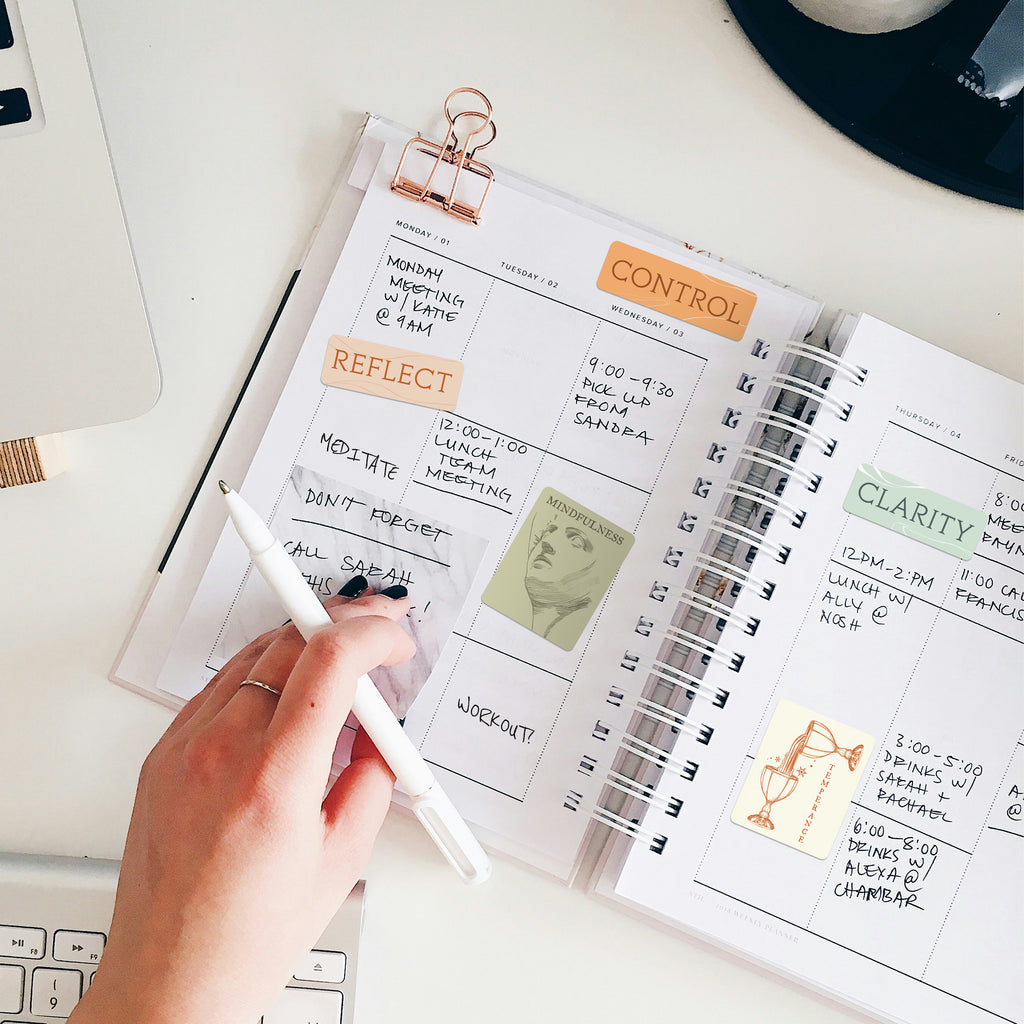 MONDAY / 01
MONDAY
MEETING
W/ KATIE
@ 9AM
REFLECT
MEDITATE
DON'T FORGET
CALL SARAH
THIS
!
TUESDAY / 02
12:00-1:00
LUNCH
TEAM
MEETING
WORKOUT!
CONTROL
WEDNESDAY / 03
9:00-9:30
PICK UP
FROM
SANDRA
MINDFULNESS
THURSDAY / 04
CLARITY
12PM-2:PM
LUNCH W/
ALLY @
NOSH
TEMPERANCE
3:00-5:00
DRINKS W/
SARAH +
RACHAEL
6:00-8:00
DRINKS W/
ALEXA @
CHAMBAR
WEEKLY PLANNER
FRID
8:00
MEE
11:00 CAL
FRANCIS
A
@
F8
F9
(
9